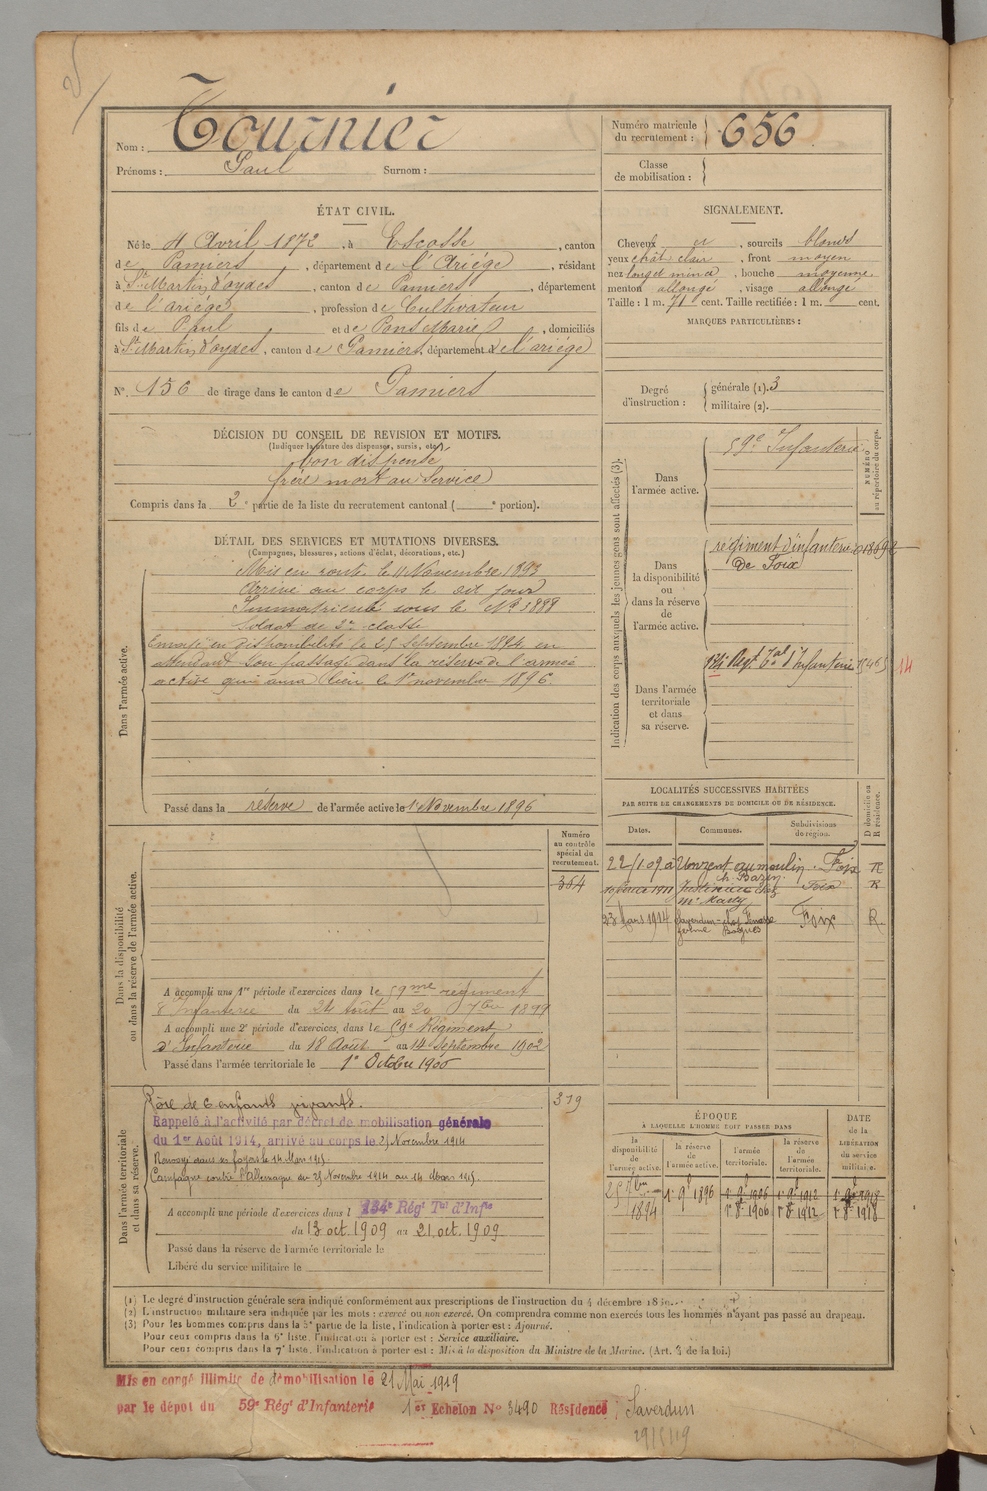 Nom : Tournier
Prénoms : Paul Surnom :
Numéro matricule du recrutement : 656
Classe de mobilisation :
ÉTAT CIVIL.
Né le 4 Avril 1872, à Escosse, canton
de Pamiers, département de l'Ariége, résidant
à St Martin d'oydes, canton de Pamiers, département
de l'ariége, profession de Cultivateur
fils de Paul et de Pons Marie, domiciliés
à St Martin d'oydes, canton de Pamiers, département de l'ariége
N° 156 de tirage dans le canton de Pamiers
SIGNALEMENT.
Cheveux et, sourcils blonds
yeux chât clair, front moyen
nez long et mince, bouche moyenne,
menton allongé, visage allongé
Taille : 1 m. 71 cent. Taille rectifiée : 1 m. cent.
MARQUES PARTICULIÈRES :
Degré d'instruction : générale (1). 3
militaire (2).
DÉCISION DU CONSEIL DE REVISION ET MOTIFS.
(Indiquer la nature des dispenses, sursis, etc.)
bon dispensé
frère mort au Service
Compris dans la 2e partie de la liste du recrutement cantonal ( e portion).
DÉTAIL DES SERVICES ET MUTATIONS DIVERSES.
(Campagnes, blessures, actions d'éclat, décorations, etc.)
Dans l'armée active.
Mis en route le 11 Novembre 1893
Arrivé au corps le dit jour
Immatriculé sous le No 3888
Soldat de 2e classe
Envoyé en disponibilité le 25 Septembre 1894 en
attendant son passage dans la réserve de l'armée
active qui aura lieu le 1er novembre 1896.
Passé dans la réserve de l'armée active le 1er Novembre 1896
Indication des corps auxquels les jeunes gens sont affectés (3).
NUMÉRO au répertoire du corps.
Dans l'armée active.
59e Infanterie
Dans la disponibilité ou dans la réserve de l'armée active.
régiment d'infanterie
de Foix
Dans l'armée territoriale et dans sa réserve.
134e Regt Tal d'Infanterie
14
LOCALITÉS SUCCESSIVES HABITÉES
PAR SUITE DE CHANGEMENTS DE DOMICILE OU DE RÉSIDENCE.
Dates. Communes. Subdivisions de région. D domicile ou R résidence.
au moulin Foix R
Foix R
23 Mars 1914 Saverdun Foix R.
Dans la disponibilité ou dans la réserve de l'armée active.
Numéro au contrôle spécial du recrutement.
364
A accompli une 1re période d'exercices dans le 59me regiment
d'Infanterie du 24 Août au 20 7bre 1899
A accompli une 2e période d'exercices, dans le 59e Régiment
d'Infanterie du 18 Août au 14 Septembre 1902
Passé dans l'armée territoriale le 1er Octobre 1906
Dans l'armée territoriale et dans sa réserve.
319
Père de 6 enfants vivants.
Rappelé à l'activité par décret de mobilisation générale
du 1er Août 1914, arrivé au corps le 25 Novembre 1914
Renvoyé dans ses foyers le 14 Mars 1915.
Campagne contre l'Allemagne du 25 Novembre 1914 au 14 Mars 1915.
A accompli une période d'exercices dans l 134e Régt Tal d'Infie
du 13 oct. 1909 au 21 oct. 1909
Passé dans la réserve de l'armée territoriale le
Libéré du service militaire le
ÉPOQUE
A LAQUELLE L'HOMME DOIT PASSER DANS
DATE de la LIBÉRATION du service militaire.
la disponibilité de l'armée active. la réserve de l'armée active. l'armée territoriale. la réserve de l'armée territoriale.
25 7bre 1894 1er 9e 1896 1er 9e 1906 1er 9e 1912 1er 9e 1918
1er 8e 1906 1er 8e 1912 1er 8e 1918
(1) Le degré d'instruction générale sera indiqué conformément aux prescriptions de l'instruction du 4 décembre
(2) L'instruction militaire sera indiquée par les mots : exercé ou non exercé. On comprendra comme non exercés tous les hommes n'ayant pas passé au drapeau.
(3) Pour les hommes compris dans la 5e partie de la liste, l'indication à porter est : Ajourné.
Pour ceux compris dans la 6e liste, l'indication à porter est : Service auxiliaire.
Pour ceux compris dans la 7e liste, l'indication à porter est : Mis à la disposition du Ministre de la Marine. (Art. 4 de la loi.)
Mis en congé illimité de démobilisation le 21 Mai 1919
par le dépot du 59e Régt d'Infanterie 1er Echelon No 3490 Résidence Saverdun
29/5/19